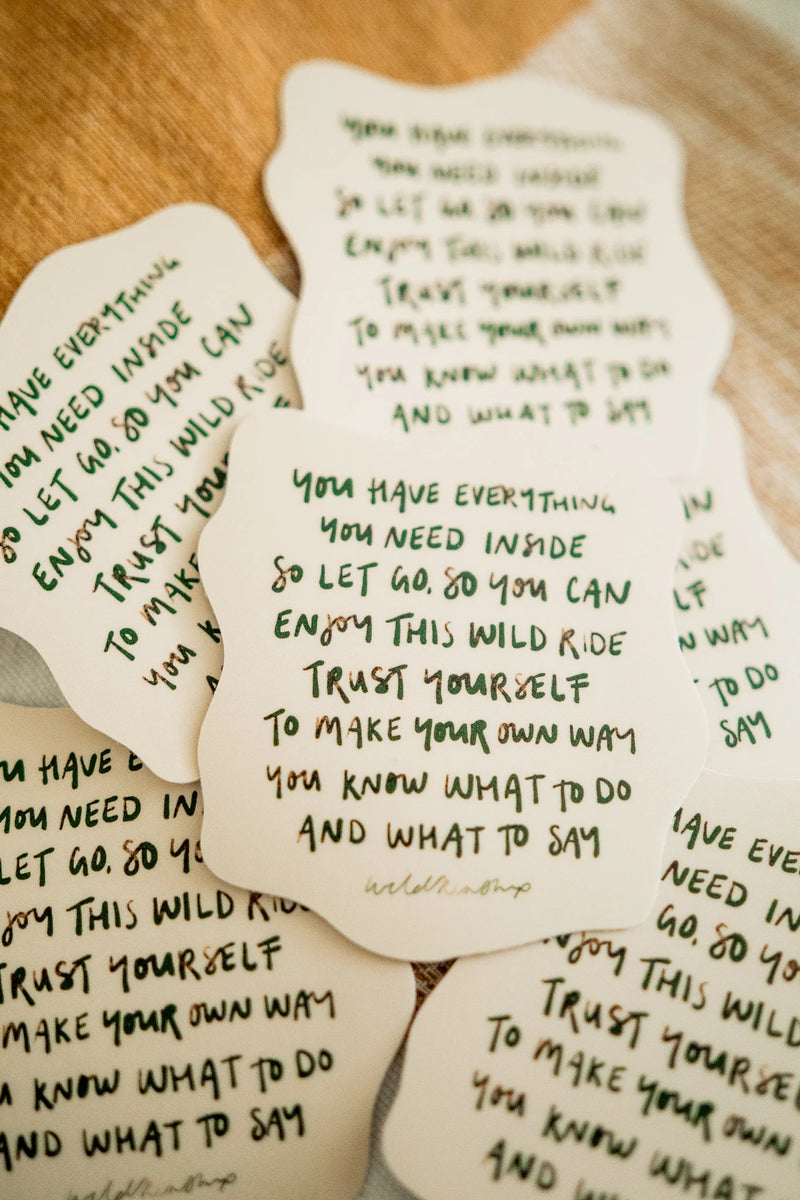 YOU HAVE EVERYTHING
YOU NEED INSIDE
SO LET GO. SO YOU CAN
ENJOY THIS WILD RIDE
TRUST YOURSELF
TO MAKE YOUR OWN WAY
YOU KNOW WHAT TO DO
AND WHAT TO SAY
HAVE EVERYTHING
YOU NEED INSIDE
SO LET GO. SO YOU CAN
ENJOY THIS WILD RIDE
TRUST YOUR
TO MAKE
YOU K
YOU HAVE EVERYTHING
YOU NEED INSIDE
SO LET GO. SO YOU CAN
ENJOY THIS WILD RIDE
TRUST YOURSELF
TO MAKE YOUR OWN WAY
YOU KNOW WHAT TO DO
AND WHAT TO SAY
IN
IDE
LF
N WAY
TO DO
SAY
U HAVE E
YOU NEED IN
LET GO. SO YO
JOY THIS WILD RID
TRUST YOURSELF
MAKE YOUR OWN WAY
U KNOW WHAT TO DO
AND WHAT TO SAY
HAVE EVE
NEED IN
GO. SO YO
NJOY THIS WILD
TRUST YOURSEL
TO MAKE YOUR OWN
YOU KNOW WHAT
AND WH